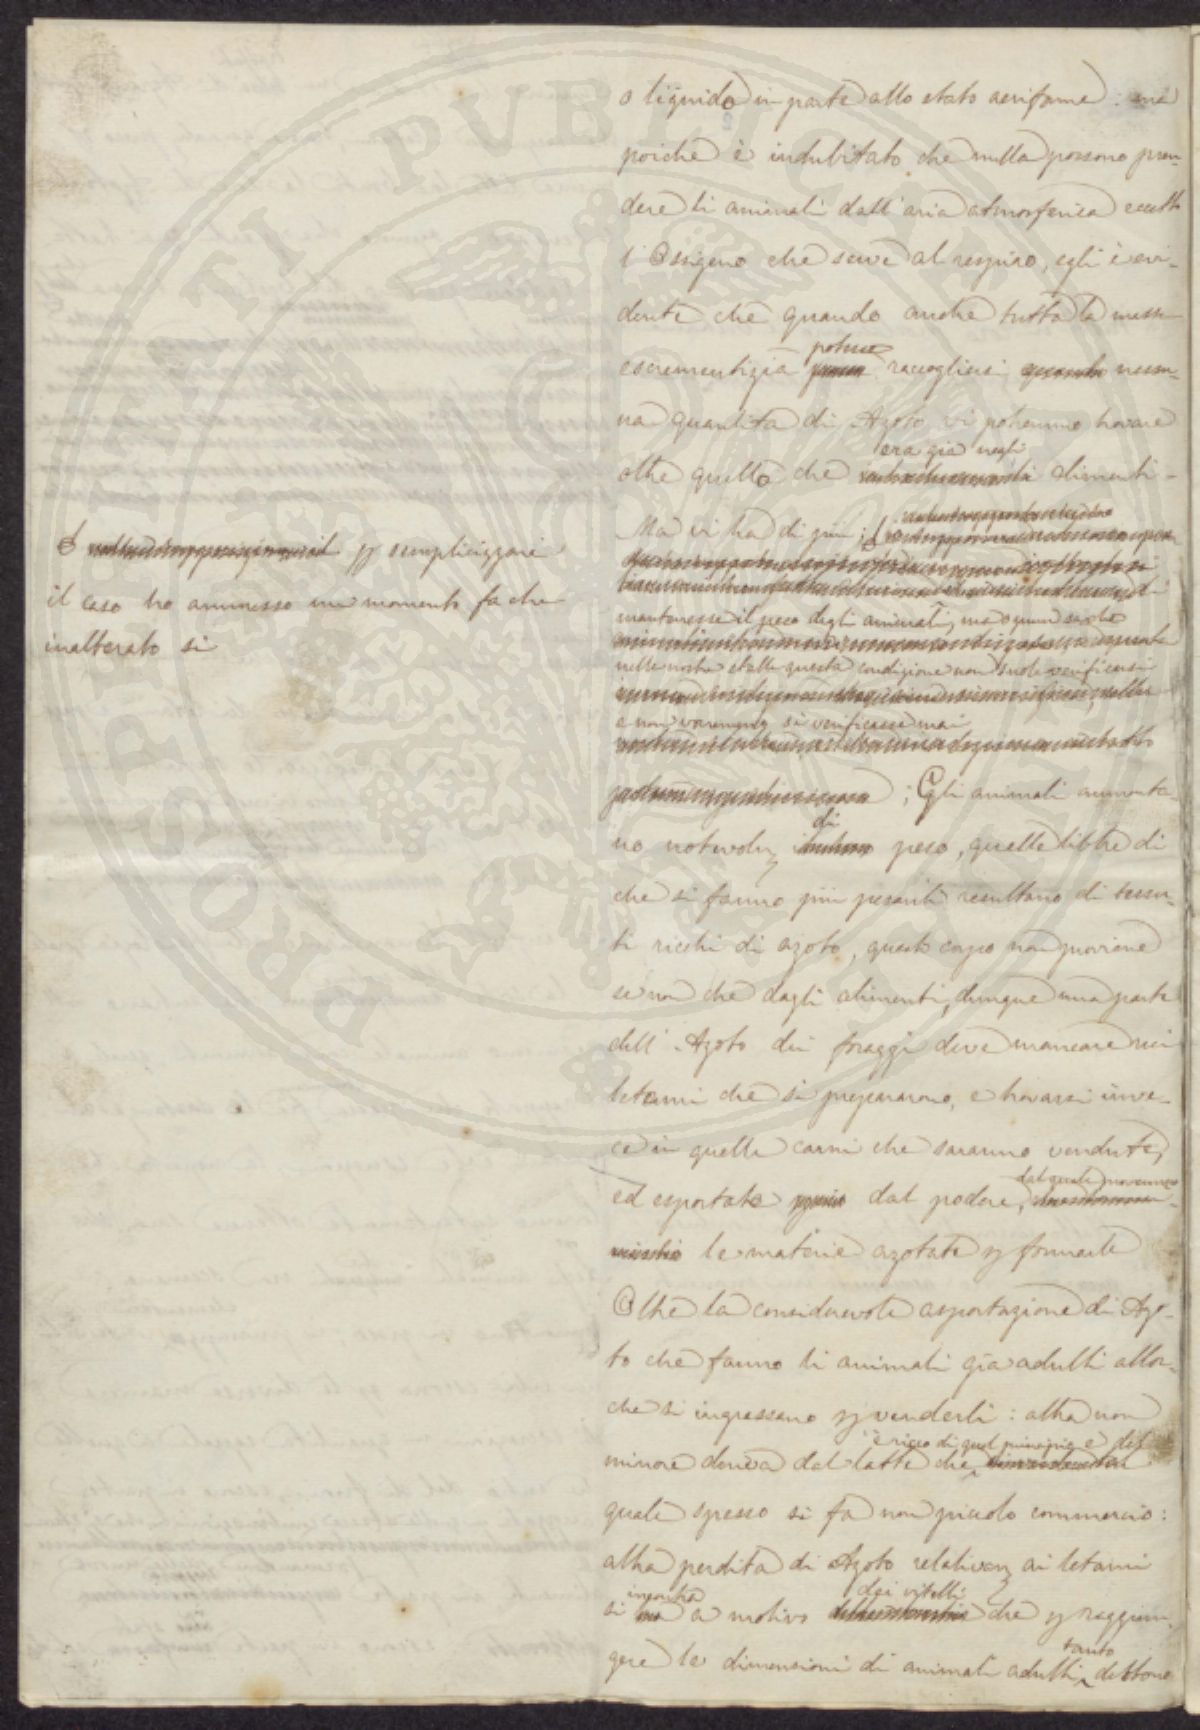 o liquido in parte allo stato aeriforme: ma
poiché è indubitato che nulla possono pren-
dere li animali dall'aria atmosferica eccetto
l'Ossigeno che serve al respiro, egli è evi-
dente che quando anche tutta la massa
escrementizia potesse raccogliersi nessu-
na quantità di Azoto vi potranno trovare
oltre quello che era già negli alimenti -
Ma vi ha di più;
per semplicizzare
il caso ho ammesso un momento fa che
inalterato si
mantenesse il peso degli animali, ma ognun sa che
nelle nostre stalle questa condizione non suole verificarsi
e non si verificasse mai
; Gli animali aumenta-
no di peso, quelle libbre di
che si fanno più pesanti resultano di tessu-
ti ricchi di azoto, questo corpo non proviene
se non che dagli alimenti, dunque una parte
dell'Azoto dei foraggi deve mancare nei
letami che si prepararono, e trovarsi inve-
ce in quelle carni che saranno vendute,
ed esportate dal podere, dal quale
le materie azotate per formarle
Oltre la considerevole asportazione di Azo-
to che fanno li animali già adulti allor-
che si ingrassano per venderli: altra non
minore deriva dal latte che è ricco di quel principio e del
quale spesso si fa non piccolo commercio:
altra perdita di Azoto ai letami
si incontra a motivo dei vitelli che per raggiun-
gere le dimensioni di animali adulti, tanto debbono
PROSPERITATI PUBLICAE